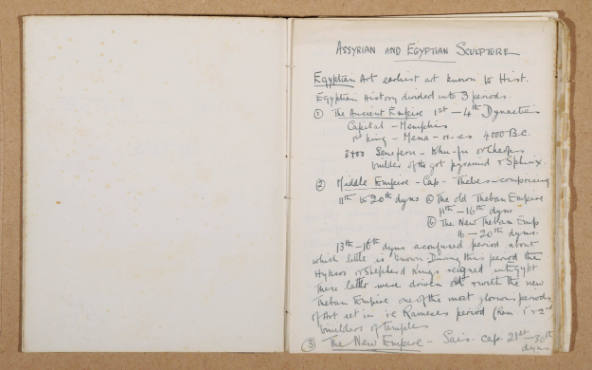 ASSYRIAN AND EGYPTIAN SCULPTURE
Egyptian Art earliest art known to Hist.
Egyptian History divided into 3 periods.
① The Ancient Empire 1st – 4th Dynasties
Capital – Memphis
king – Mena – 4000 B.C.
Seneferu – Khu-fu or Cheops
builder of the gt pyramid & Sphinx.
② Middle Empire – Cap – Thebes – comprising
11th to 20th dyns ⓐ The old Theban Empire
11th – 16th dyns
ⓑ The New Theban Emp
– 20th dyns.
13th – 16th dyns a confused period about
which little is known During this period the
Hyksos or Shepherd Kings reigned in Egypt
These latter were driven out & with the new
Theban Empire one of the most glorious periods
of Art set in i.e Rameses period
builders of temples
③ The New Empire – Sais. cap. 21st – 30th
dyns